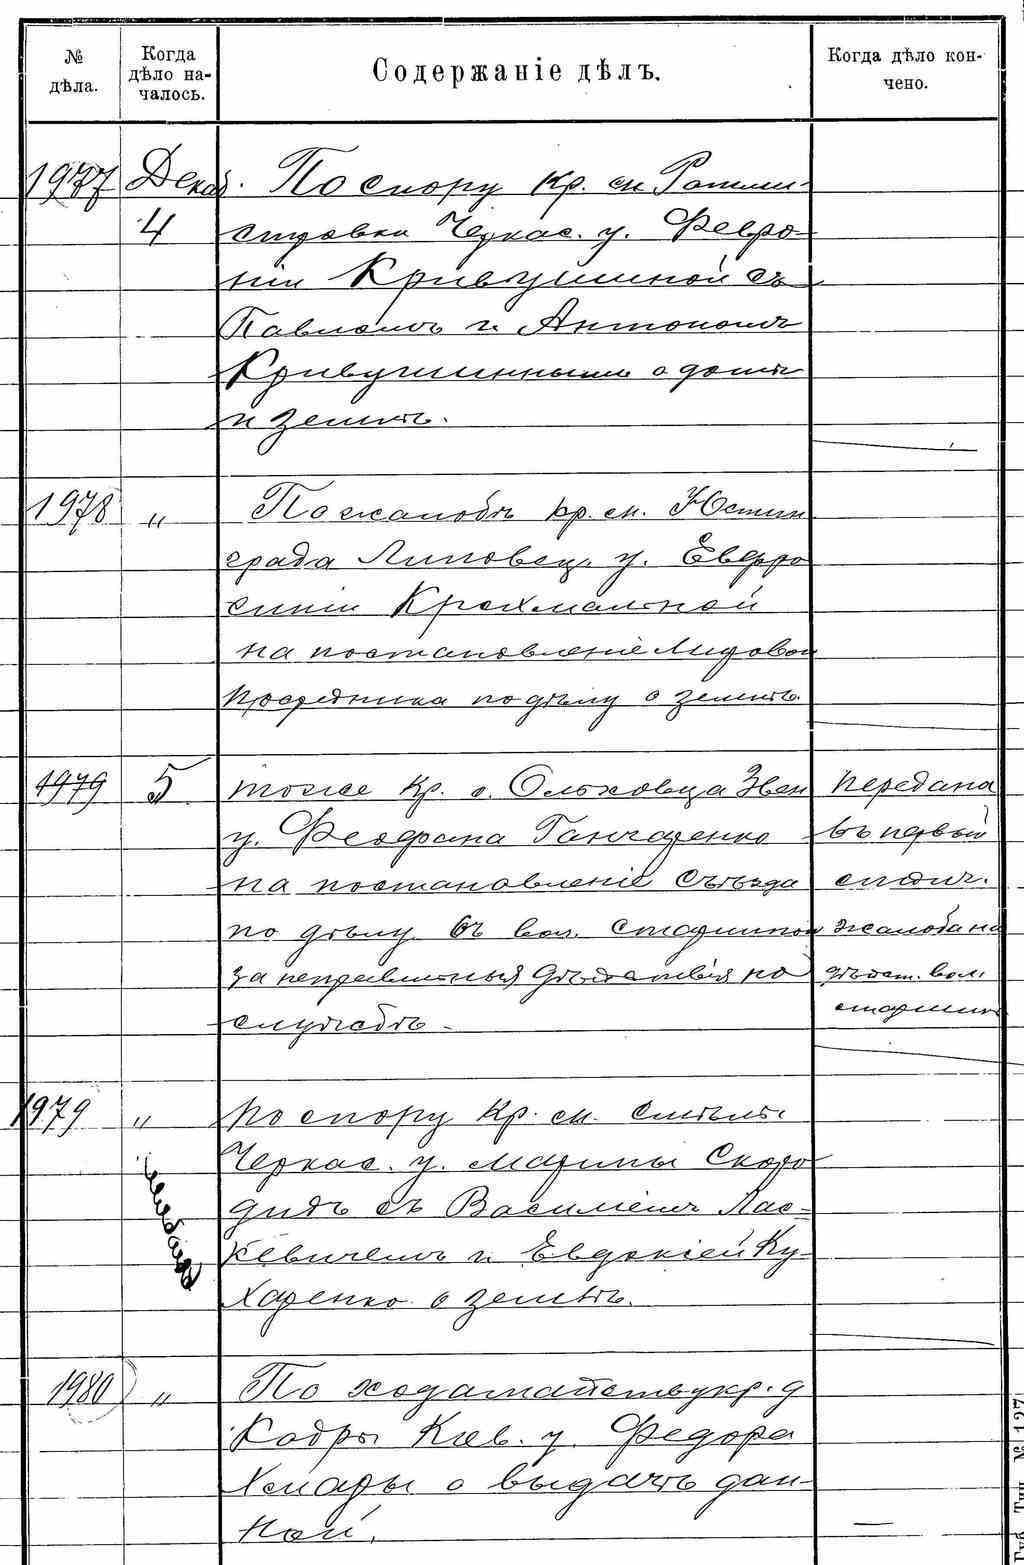 № дѣла.
Когда дѣло на-чалось.
Содержаніе дѣлъ.
Когда дѣло кон-чено.
1977 Декаб. По спору кр. см. Ротми-
4 стровки Черкас. у. Февро-
ніи Кривушиной съ
Павломъ и Антономъ
Кривушиными о домѣ
и землѣ.
1978 " По жалобѣ кр. см. Юстин
града Липовец. у. Евфро
синіи Крохмальной
на постановленіе Мирового
посредника по дѣлу о землѣ.
1979 5 тоже кр. с. Ольховца Звен
у. Феофана Ганчаренко
на постановленіе Съѣзда
по дѣлу съ вол. старшиною
за неправильныя дѣйствія по
службѣ.
передана
въ первый
жалоба на
дѣйст. вол.
старшины
1979 " по спору кр. см. Смѣлы
Черкас. у. Марины Скоро
дидъ съ Василіемъ Лас-
кевичемъ и Евдокіей Ку-
харенко о землѣ.
1980 " По ходатайству кр. д
Кодры Кіев. у. Федора
Хмары о выдачѣ дан-
ной.
—
Губ. Тип. № 127